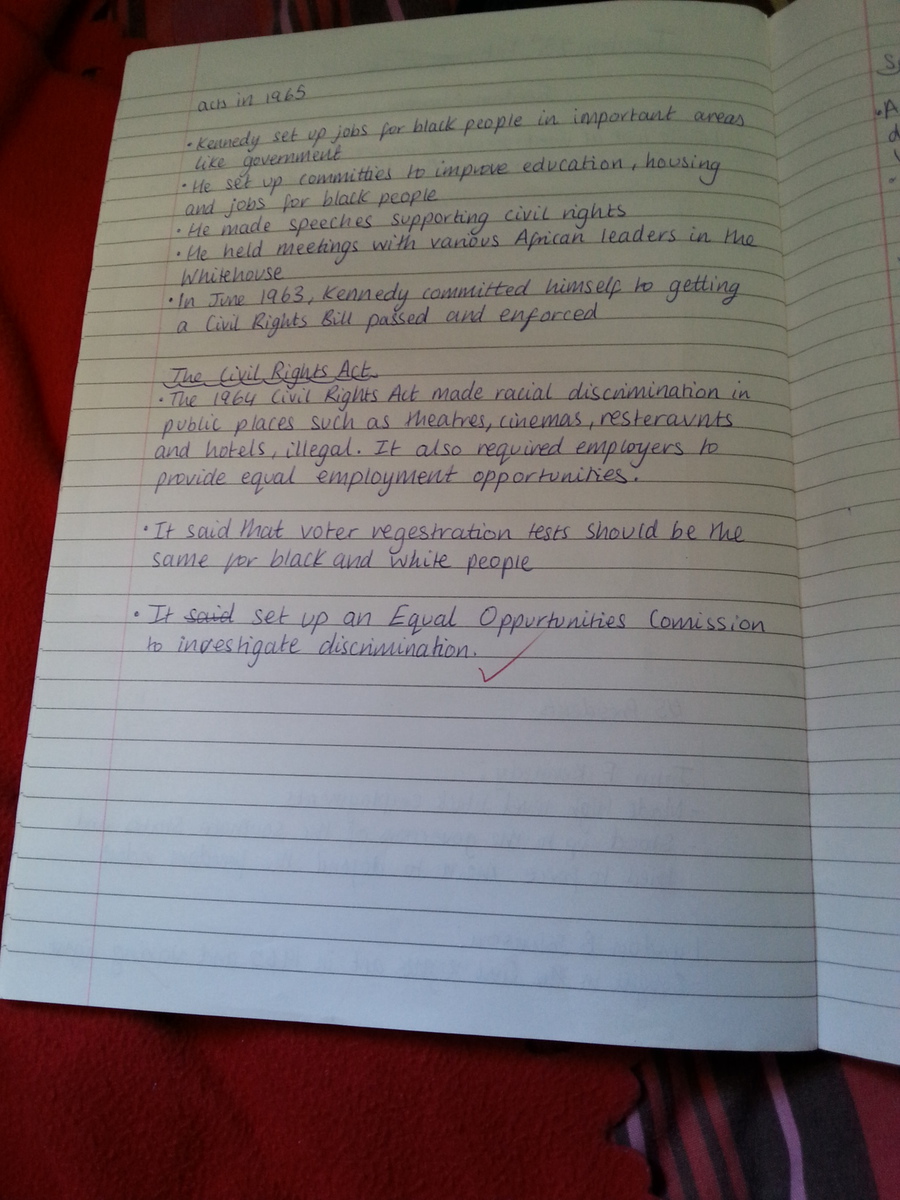 acts in 1965
• Kennedy set up jobs for black people in important areas
like government
• He set up committies to improve education, housing
and jobs for black people
• He made speeches supporting civil rights
• He held meetings with various African leaders in the
Whitehouse
• In June 1963, Kennedy committed himself to getting
a Civil Rights Bill passed and enforced
The Civil Rights Act
• The 1964 Civil Rights Act made racial discrimination in
public places such as theatres, cinemas, resteraunts
and hotels, illegal. It also required employers to
provide equal employment opportunities.
• It said that voter regestration tests should be the
same for black and white people
• It said set up an Equal Oppurtunities Comission
to investigate discrimination.